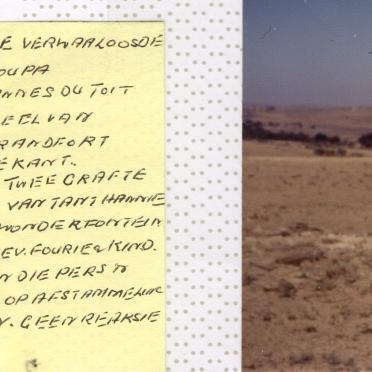 E VERWAALOOSDE
OUPA
NNES DU TOIT
EELVAN
RANDFORT
EKANT.
TWEE GRAFTE
VAN TANT HANNIE
WONDERFONTEIN
EV. FOURIE & KIND.
N DIE PERS 'N
OP AFSTAMMELIN
. GEEN REAKSIE